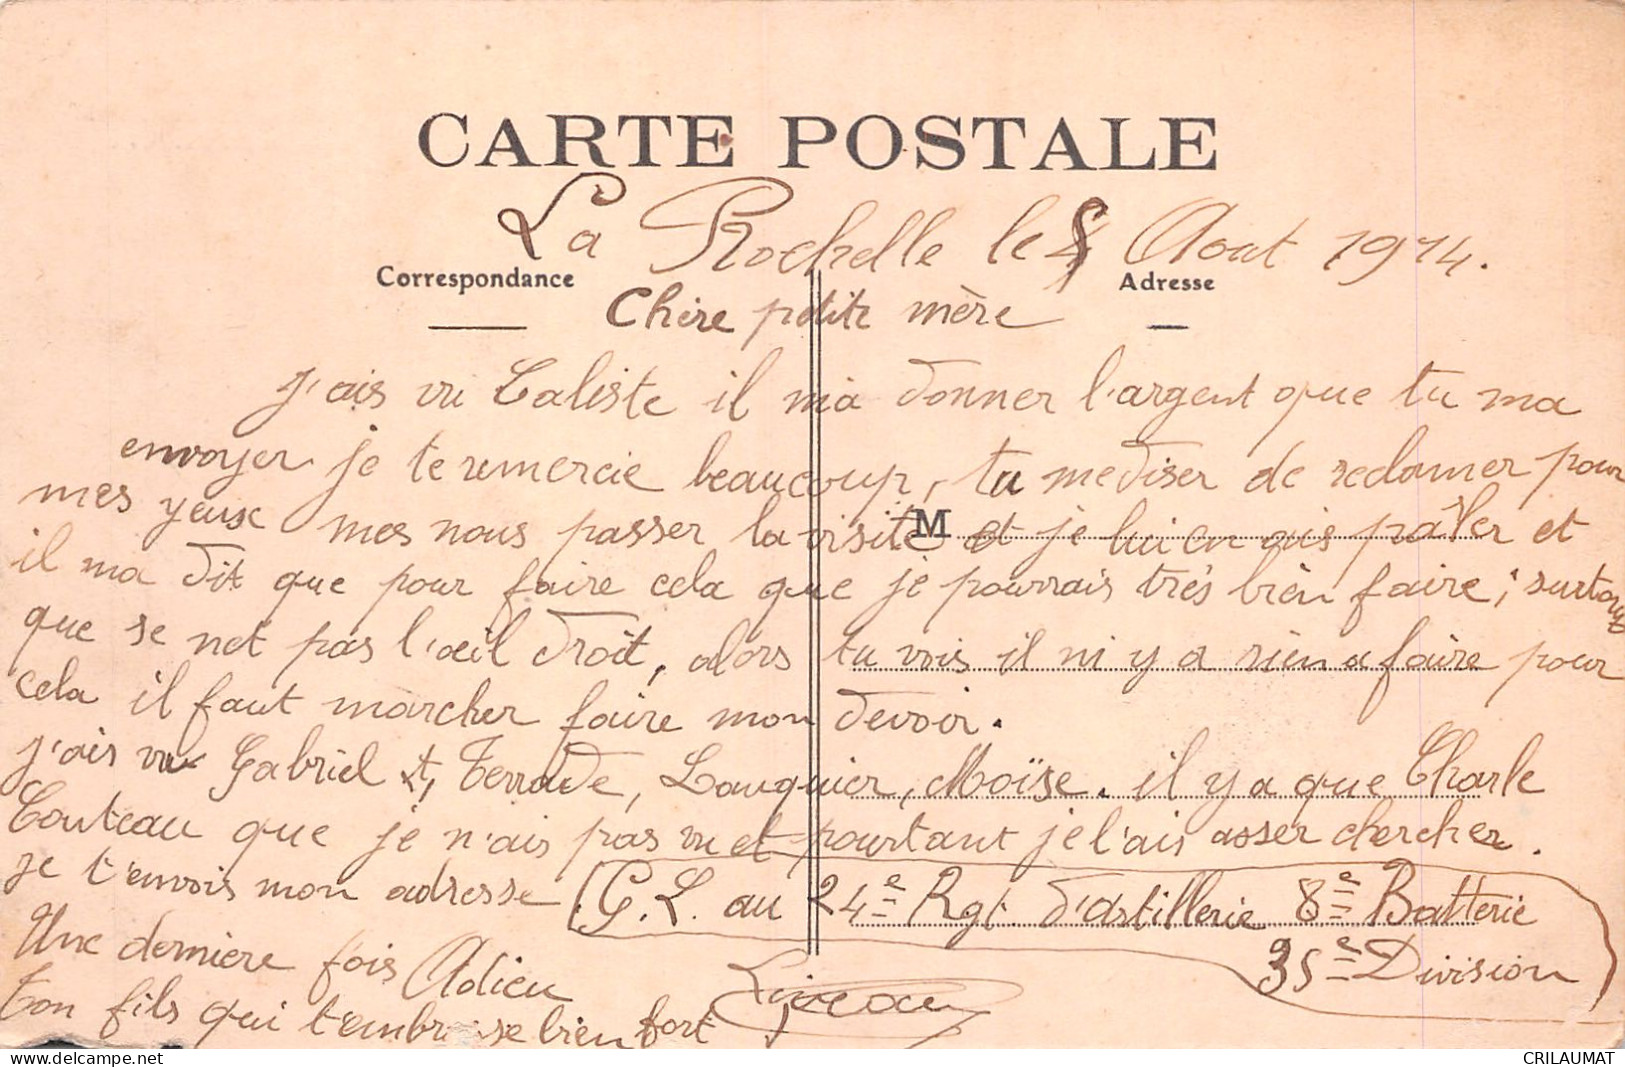 CARTE POSTALE
La Rochelle le Aout 1914.
Correspondance
Adresse
Chère petite mère
J'ais vu Caliste il m'a donner l'argent que tu ma
envoyer je te remercie beaucoup, tu me diser de reclamer pour
mes yeux mes nous passer la visite et je lui en ais parler et
M
il ma dit que pour faire cela que je pourrais très bien faire, surtout
que se net pas l'œil droit, alors tu vois il ni y a rien a faire pour
cela il faut marcher faire mon devoir.
J'ais vu Gabriel Terrade, Lauquier, Moïse. il y a que Charle
Couteau que je n'ais pas vu et pourtant je l'ais asser chercher.
je t'envois mon adresse. G. L. au 24e Rgt. d'artillerie 8e Batterie
35e Division
Une derniere fois Adieu
Ton fils qui t'embrasse bien fort
CRILAUMAT
delcampe.net